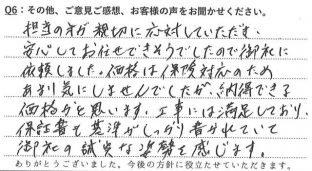 Q6：その他、ご意見ご感想、お客様の声をお聞かせください。
担当の方が親切に応対していただき、
安心してお任せできそうでしたので御社に
依頼しました。価格は保険対応のため
あまり気にしませんでしたが、納得できる
価格かと思います。工事には満足しており、
保証書も基準がしっかり書かれていて
御社の誠実な姿勢を感じます。
ありがとうございました。今後の方針に役立たせていただきます。